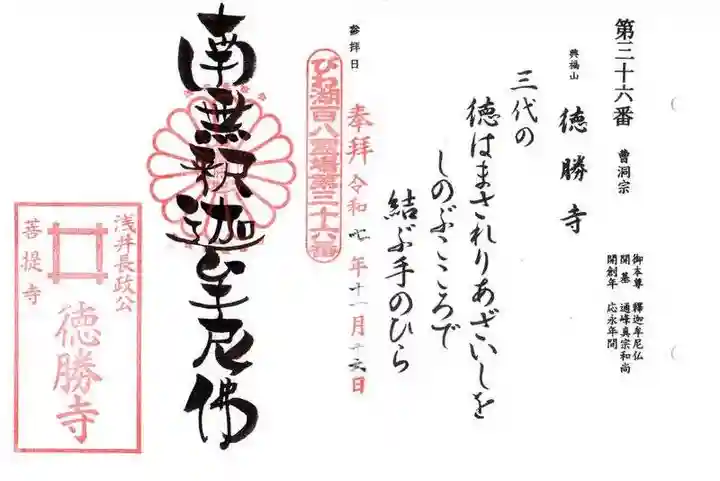 第三十六番 曹洞宗
御本尊 釋迦牟尼仏
開基 通峰真宗和尚
開創年 応永年間
興福山 徳勝寺
三代の
徳はまされりあざいしを
しのぶこころで
結ぶ手のひら
参拝日
奉拝 令和七年十一月十六日
びわ湖百八霊場第三十六番
南無釈迦牟尼佛
浅井長政公
菩提寺
徳勝寺